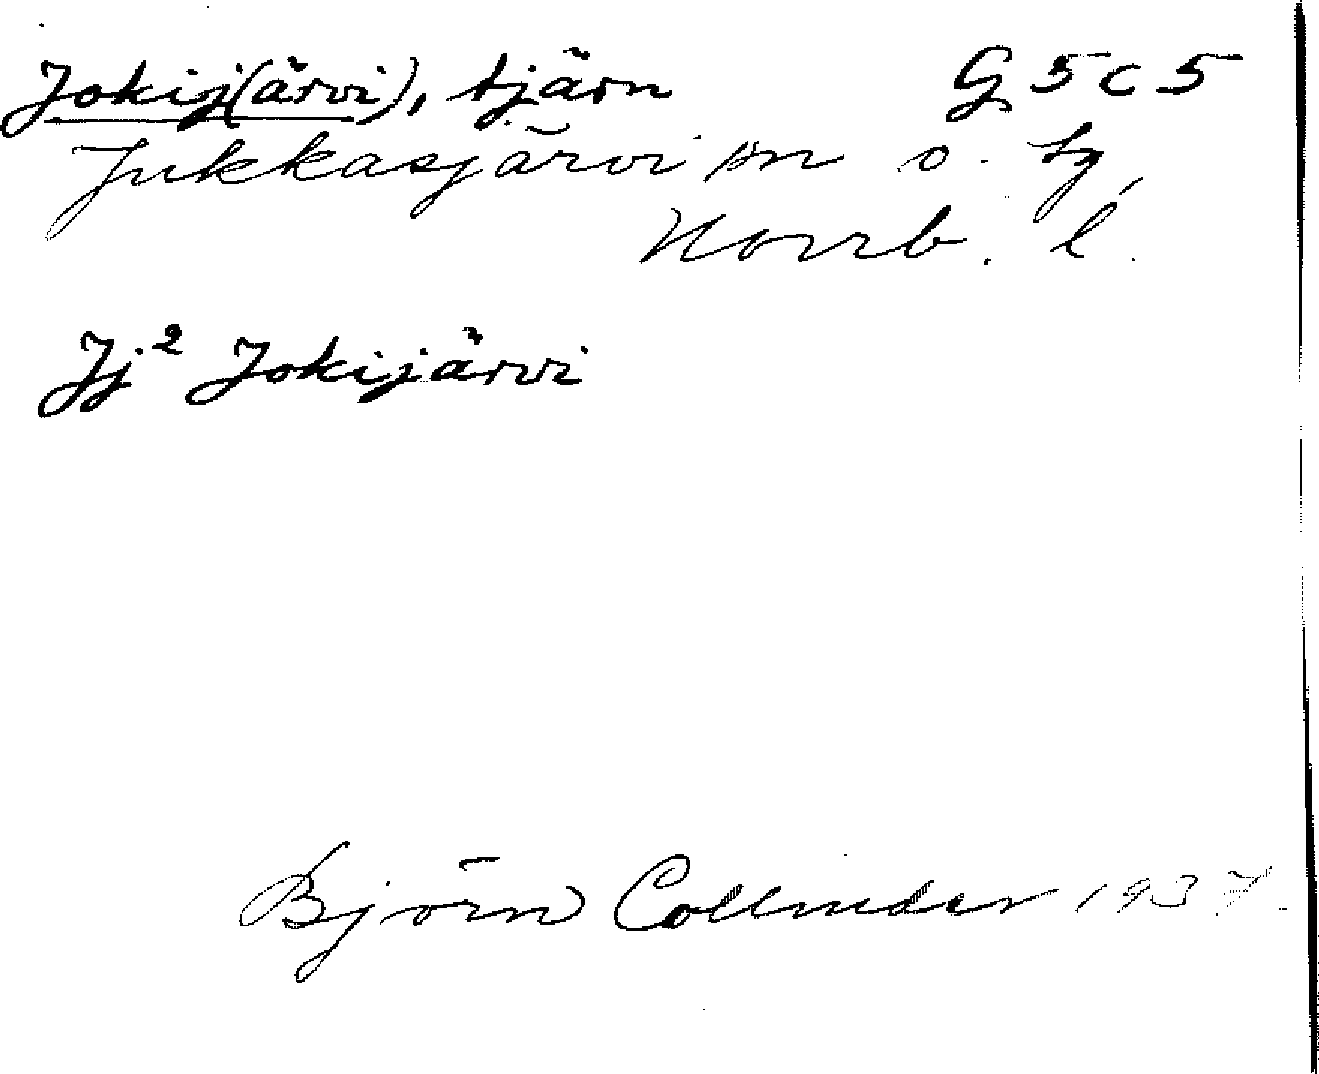 Jokij(ärvi), tjärn G 5 c 5
Jukkasjärvi sn o. tg,
Norrb. l.
Jj² Jokijärvi
Björn Collinder 1937.